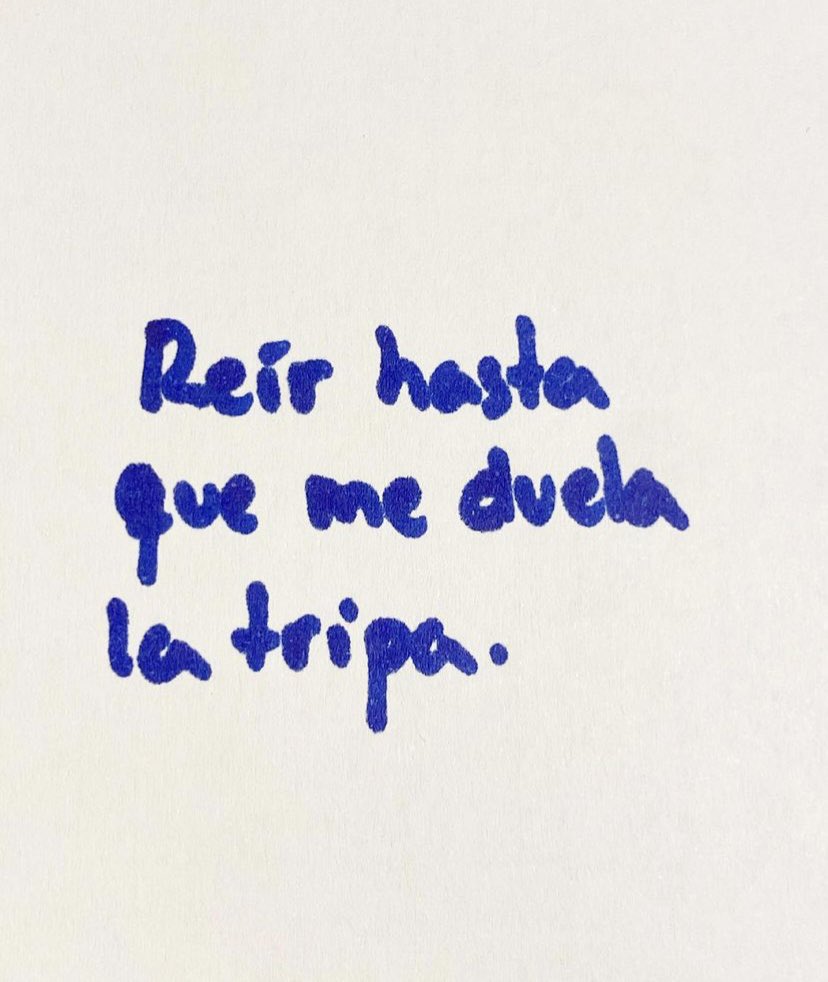 Reír hasta
que me duela
la tripa.